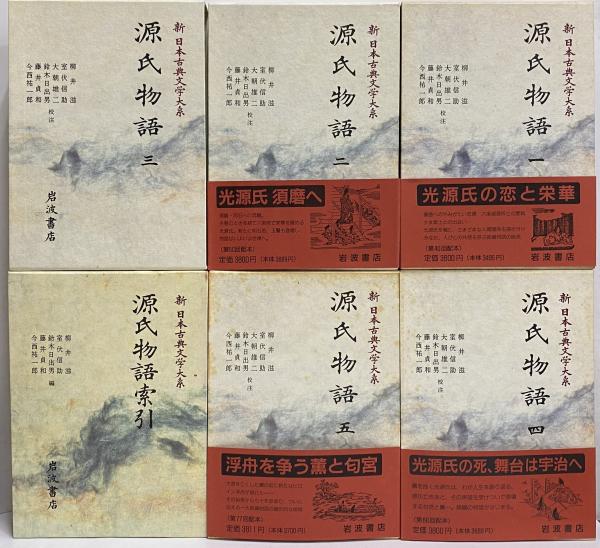 新 日本古典文学大系
源氏物語 三
柳井 滋
室伏信助
大朝雄二
鈴木日出男
藤井貞和
今西祐一郎
校注
岩波書店
新 日本古典文学大系
源氏物語 二
柳井 滋
室伏信助
大朝雄二
鈴木日出男
藤井貞和
今西祐一郎
校注
光源氏 須磨へ
定価3800円(本体3689円)
岩波書店
新 日本古典文学大系
源氏物語 一
柳井 滋
室伏信助
大朝雄二
鈴木日出男
藤井貞和
今西祐一郎
校注
光源氏の恋と栄華
定価3600円(本体3495円)
岩波書店
新 日本古典文学大系
源氏物語索引
柳井 滋
室伏信助
大朝雄二
鈴木日出男
藤井貞和
今西祐一郎
編
岩波書店
新 日本古典文学大系
源氏物語 五
柳井 滋
室伏信助
大朝雄二
鈴木日出男
藤井貞和
今西祐一郎
校注
浮舟を争う薫と匂宮
(第77回配本)
定価3811円(本体3700円)
岩波書店
新 日本古典文学大系
源氏物語 四
柳井 滋
室伏信助
大朝雄二
鈴木日出男
藤井貞和
今西祐一郎
校注
光源氏の死、舞台は宇治へ
定価3800円(本体3689円)
岩波書店